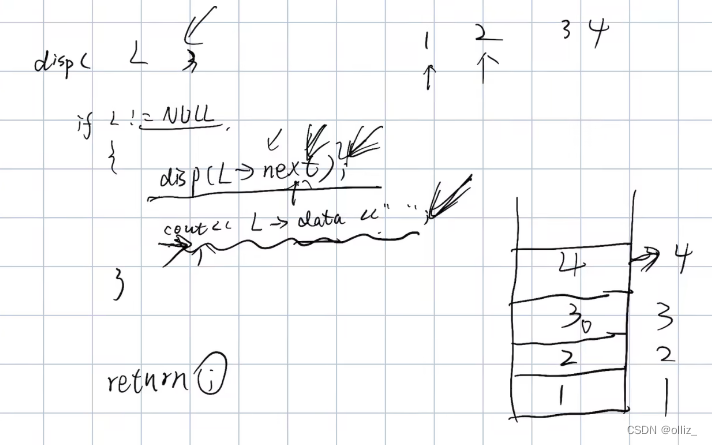 disp( L
1 2 3 4
if L != NULL
{
disp(L→next);
cout<< L→data <<" ";
}
return ;
4 → 4
3 3
2 2
1 1
CSDN @olliz_